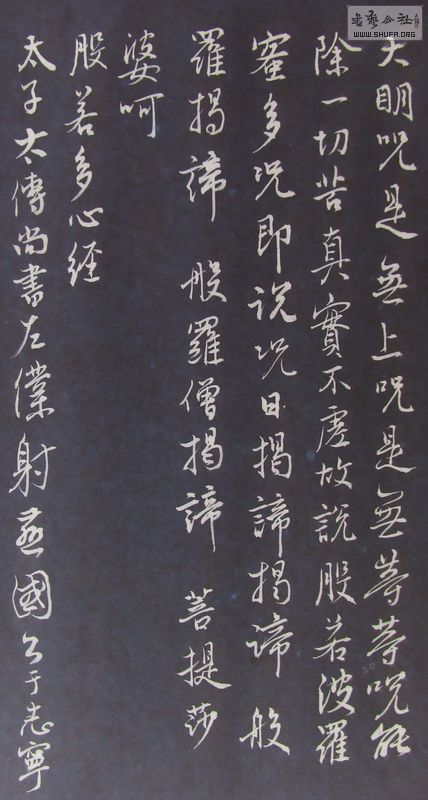 書藝公社
WWW.SHUFA.ORG
大明呪是無上呪是無等等呪能
除一切苦真實不虛故說般若波羅
蜜多呪即說呪曰揭諦揭諦般
羅揭諦 般羅僧揭諦 菩提莎
婆呵
般若多心經
太子太傅尚書左僕射燕國公于志寧